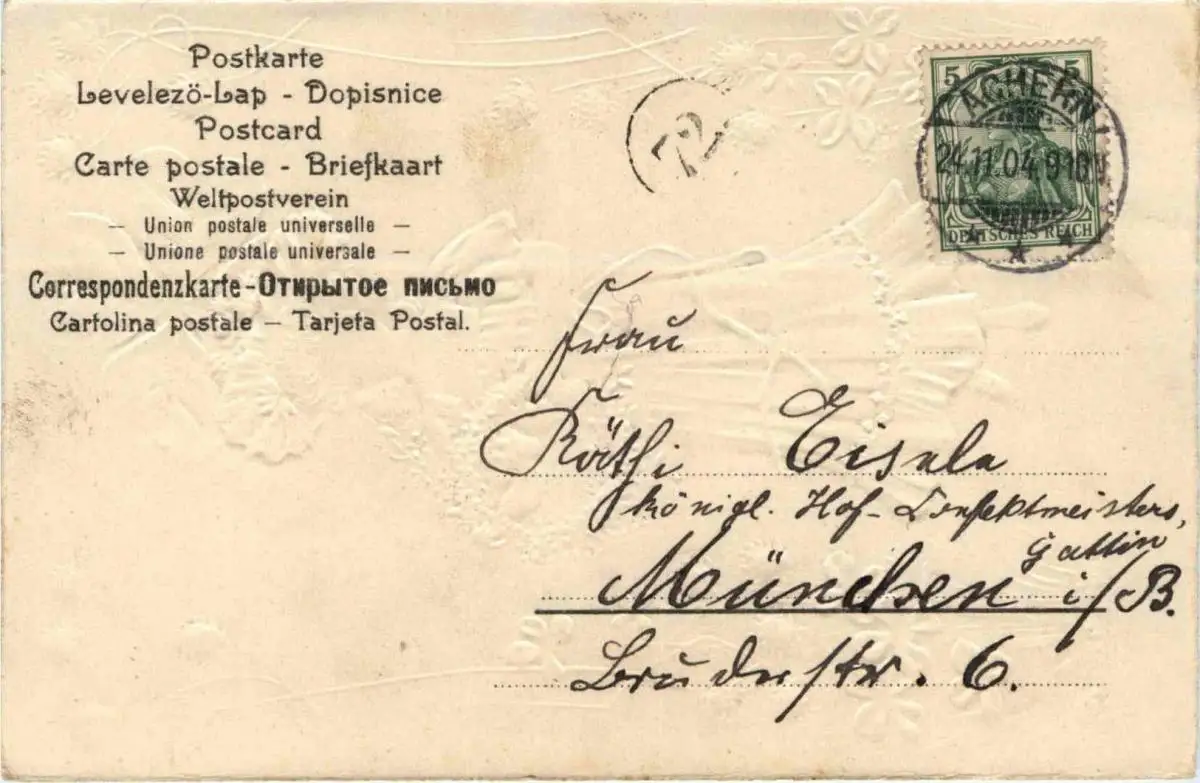 Postkarte
Levelezö-Lap - Dopisnice
Postcard
Carte postale - Briefkaart
Weltpostverein
— Union postale universelle —
— Unione postale universale —
Correspondenzkarte-Открытое письмо
Cartolina postale — Tarjeta Postal.
72
5 5
DEUTSCHES REICH
ACHERN
24.11.04. 9-10V
Frau
Käthi Eisele
königl. Hof-Confektmeisters,
Gattin
München i/B.
Bruderstr. 6.